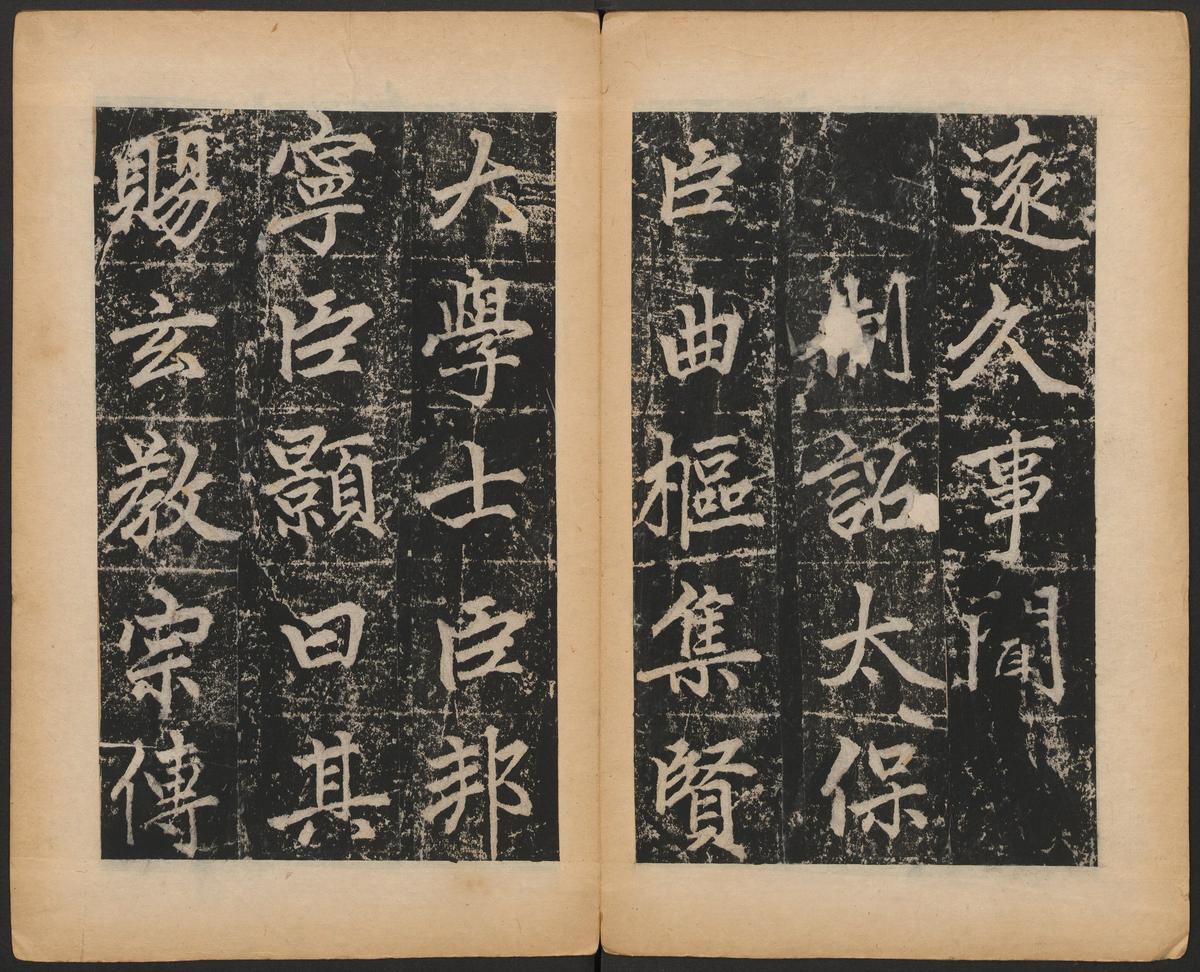 遠久事聞
制詔太保
臣曲樞集賢
大學士臣邦
寧臣顥曰其
賜玄教宗傳